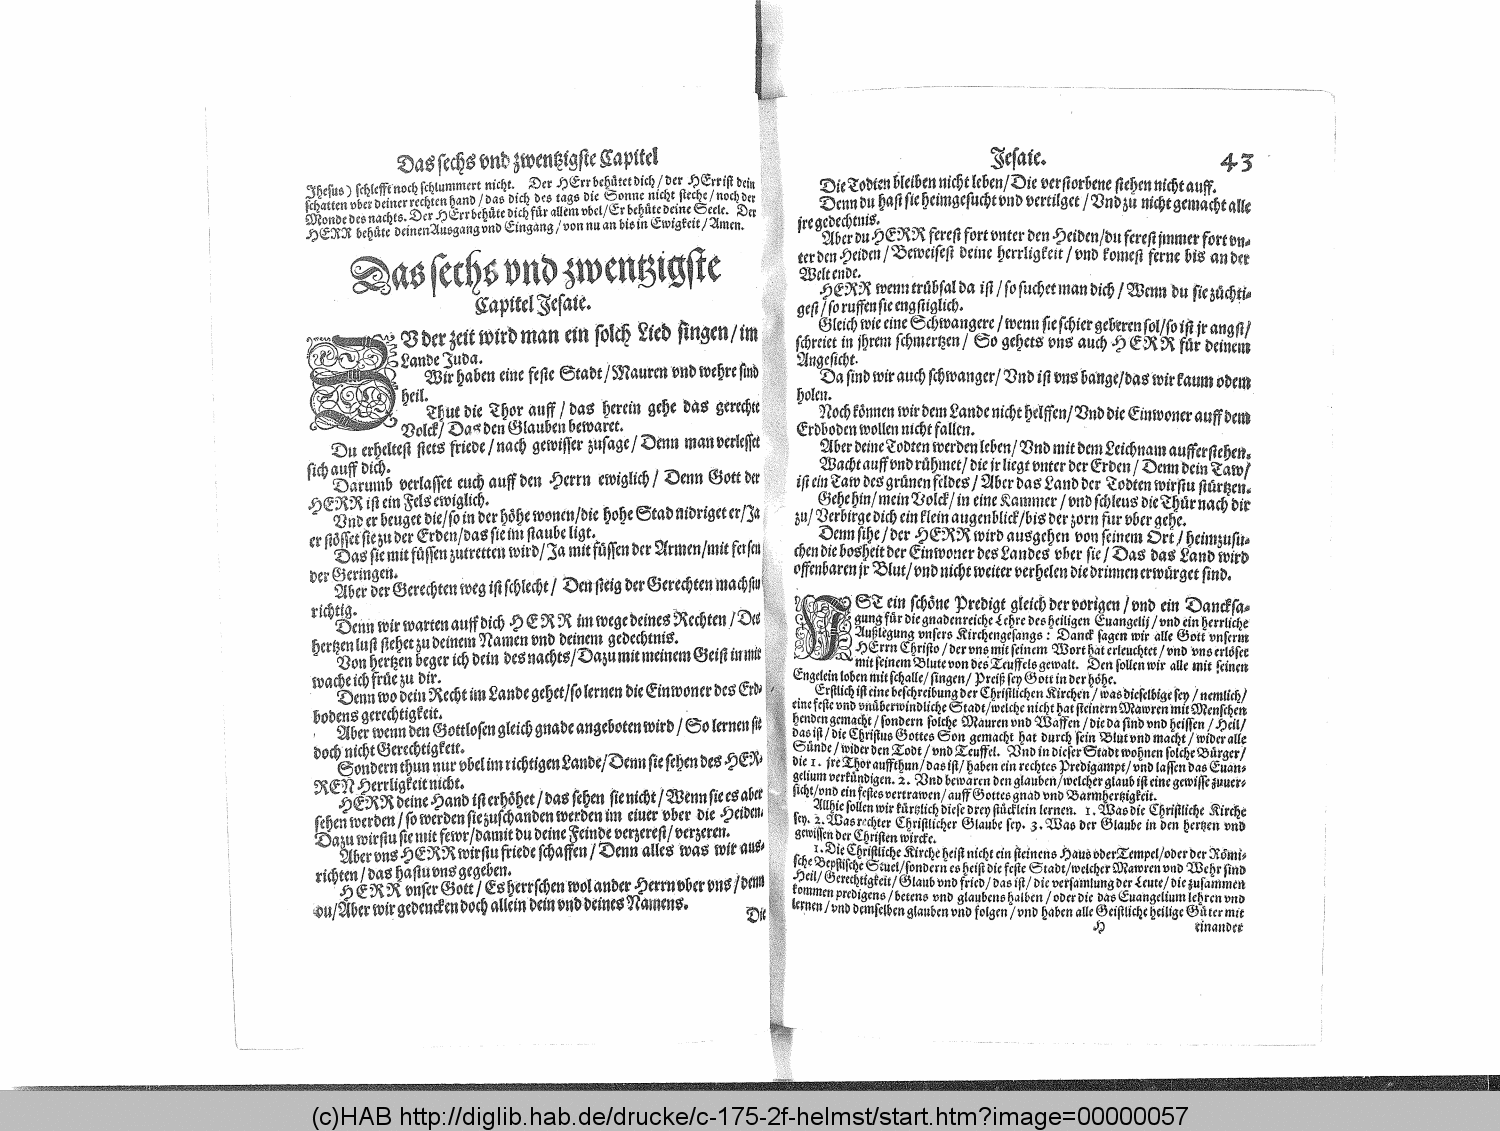 Das sechs vnd zwentzigste Capitel
Jhesus) schlefft noch schlummert nicht. Der HErr behütet dich / der HErr ist dein
schatten vber deiner rechten hand / das dich des tags die Sonne nicht steche / noch der
Monde des nachts. Der HErr behüte dich für allem vbel / Er behüte deine Seele. Der
HERR behüte deinen Ausgang vnd Eingang / von nu an bis in Ewigkeit / Amen.
Das sechs vnd zwentzigste
Capitel Jesaie.
ZV der zeit wird man ein solch Lied singen / im
Lande Juda.
Wir haben eine feste Stadt / Mauren vnd wehre sind
heil.
Thut die Thor auff / das herein gehe das gerechte
Volck / Das den Glauben bewaret.
Du erheltest stets friede / nach gewisser zusage / Denn man verlesset
sich auff dich.
Darumb verlasset euch auff den Herrn ewiglich / Denn Gott der
HERR ist ein Fels ewiglich.
Vnd er beuget die / so in der höhe wonen / die hohe Stad nidriget er / Ja
er stösset sie zu der Erden / das sie im staube ligt.
Das sie mit füssen zutretten wird / Ja mit füssen der Armen / mit fersen
der Geringen.
Aber der Gerechten weg ist schlecht / Den steig der Gerechten machstu
richtig.
Denn wir warten auff dich HERR im wege deines Rechten / Des
hertzen lust stehet zu deinem Namen vnd deinem gedechtnis.
Von hertzen beger ich dein des nachts / Dazu mit meinem Geist in mir
wache ich früe zu dir.
Denn wo dein Recht im Lande gehet / so lernen die Einwoner des Erd-
bodens gerechtigkeit.
Aber wenn den Gottlosen gleich gnade angeboten wird / So lernen sie
doch nicht Gerechtigkeit.
Sondern thun nur vbel im richtigen Lande / Denn sie sehen des HER-
REN Herrligkeit nicht.
HERR deine Hand ist erhöhet / das sehen sie nicht / Wenn sie es aber
sehen werden / so werden sie zuschanden werden im eiuer vber die Heiden.
Dazu wirstu sie mit fewr / damit du deine Feinde verzerest / verzeren.
Aber vns HERR wirstu friede schaffen / Denn alles was wir aus-
richten / das hastu vns gegeben.
HERR vnser Gott / Es herrschen wol ander Herrn vber vns / denn
du / Aber wir gedencken doch allein dein vnd deines Namens.
Die
Jesaie. 43
Die Todten bleiben nicht leben / Die verstorbene stehen nicht auff.
Denn du hast sie heimgesucht vnd vertilget / Vnd zu nicht gemacht alle
jre gedechtnis.
Aber du HERR ferest fort vnter den Heiden / du ferest jmmer fort vn-
ter den Heiden / Beweisest deine herrligkeit / vnd komest ferne bis an der
Welt ende.
HERR wenn trübsal da ist / so suchet man dich / Wenn du sie züchti-
gest / so ruffen sie engstiglich.
Gleich wie eine Schwangere / wenn sie schier geberen sol / so ist jr angst /
schreiet in jhrem schmertzen / So gehets vns auch HERR für deinem
Angesicht.
Da sind wir auch schwanger / Vnd ist vns bange / das wir kaum odem
holen.
Noch können wir dem Lande nicht helffen / Vnd die Einwoner auff dem
Erdboden wollen nicht fallen.
Aber deine Todten werden leben / Vnd mit dem Leichnam aufferstehen.
Wacht auff vnd rühmet / die jr liegt vnter der Erden / Denn dein Taw /
ist ein Taw des grünen feldes / Aber das Land der Todten wirstu stürtzen.
Gehe hin / mein Volck / in eine Kammer / vnd schleus die Thür nach dir
zu / Verbirge dich ein klein augenblick / bis der zorn fur vber gehe.
Denn sihe / der HERR wird ausgehen von seinem Ort / heimzusu-
chen die bosheit der Einwoner des Landes vber sie / Das das Land wird
offenbaren jr Blut / vnd nicht weiter verhelen die drinnen erwürget sind.
IST ein schöne Predigt gleich der vorigen / vnd ein Dancksa-
gung für die gnadenreiche Lehre des heiligen Euangelij / vnd ein herrliche
Außlegung vnsers Kirchengesangs: Danck sagen wir alle Gott vnserm
HErrn Christo / der vns mit seinem Wort hat erleuchtet / vnd vns erlöset
mit seinem Blute von des Teuffels gewalt. Den sollen wir alle mit seinen
Engelein loben mit schalle / singen / Preiß sey Gott in der höhe.
Erstlich ist eine beschreibung der Christlichen Kirchen / was dieselbige sey / nemlich /
eine feste vnd vnüberwindliche Stadt / welche nicht hat steinern Mawren mit Menschen
henden gemacht / sondern solche Mauren vnd Waffen / die da sind vnd heissen / Heil /
das ist / die Christus Gottes Son gemacht hat durch sein Blut vnd macht / wider alle
Sünde / wider den Todt / vnd Teuffel. Vnd in dieser Stadt wohnen solche Bürger /
die 1. jre Thor auffthun / das ist / haben ein rechtes Predigampt / vnd lassen das Euan-
gelium verkündigen. 2. Vnd bewaren den glauben / welcher glaub ist eine gewisse zuuer-
sicht / vnd ein festes vertrawen / auff Gottes gnad vnd Barmhertzigkeit.
Allhie sollen wir kürtzlich diese drey stücklein lernen. 1. Was die Christliche Kirche
sey. 2. Was rechter Christlicher Glaube sey. 3. Was der Glaube in den hertzen vnd
gewissen der Christen wircke.
1. Die Christliche Kirche heist nicht ein steinens Haus oder Tempel / oder der Römi-
sche Bepstische Stuel / sondern es heist die feste Stadt / welcher Mawren vnd Wehr sind
Heil / Gerechtigkeit / Glaub vnd fried / das ist / die versamlung der Leute / die zusammen
kommen predigens / betens vnd glaubens halben / oder die das Euangelium lehren vnd
lernen / vnd demselben glauben vnd folgen / vnd haben alle Geistliche heilige Güter mit
H einander
(c)HAB http://diglib.hab.de/drucke/c-175-2f-helmst/start.htm?image=00000057